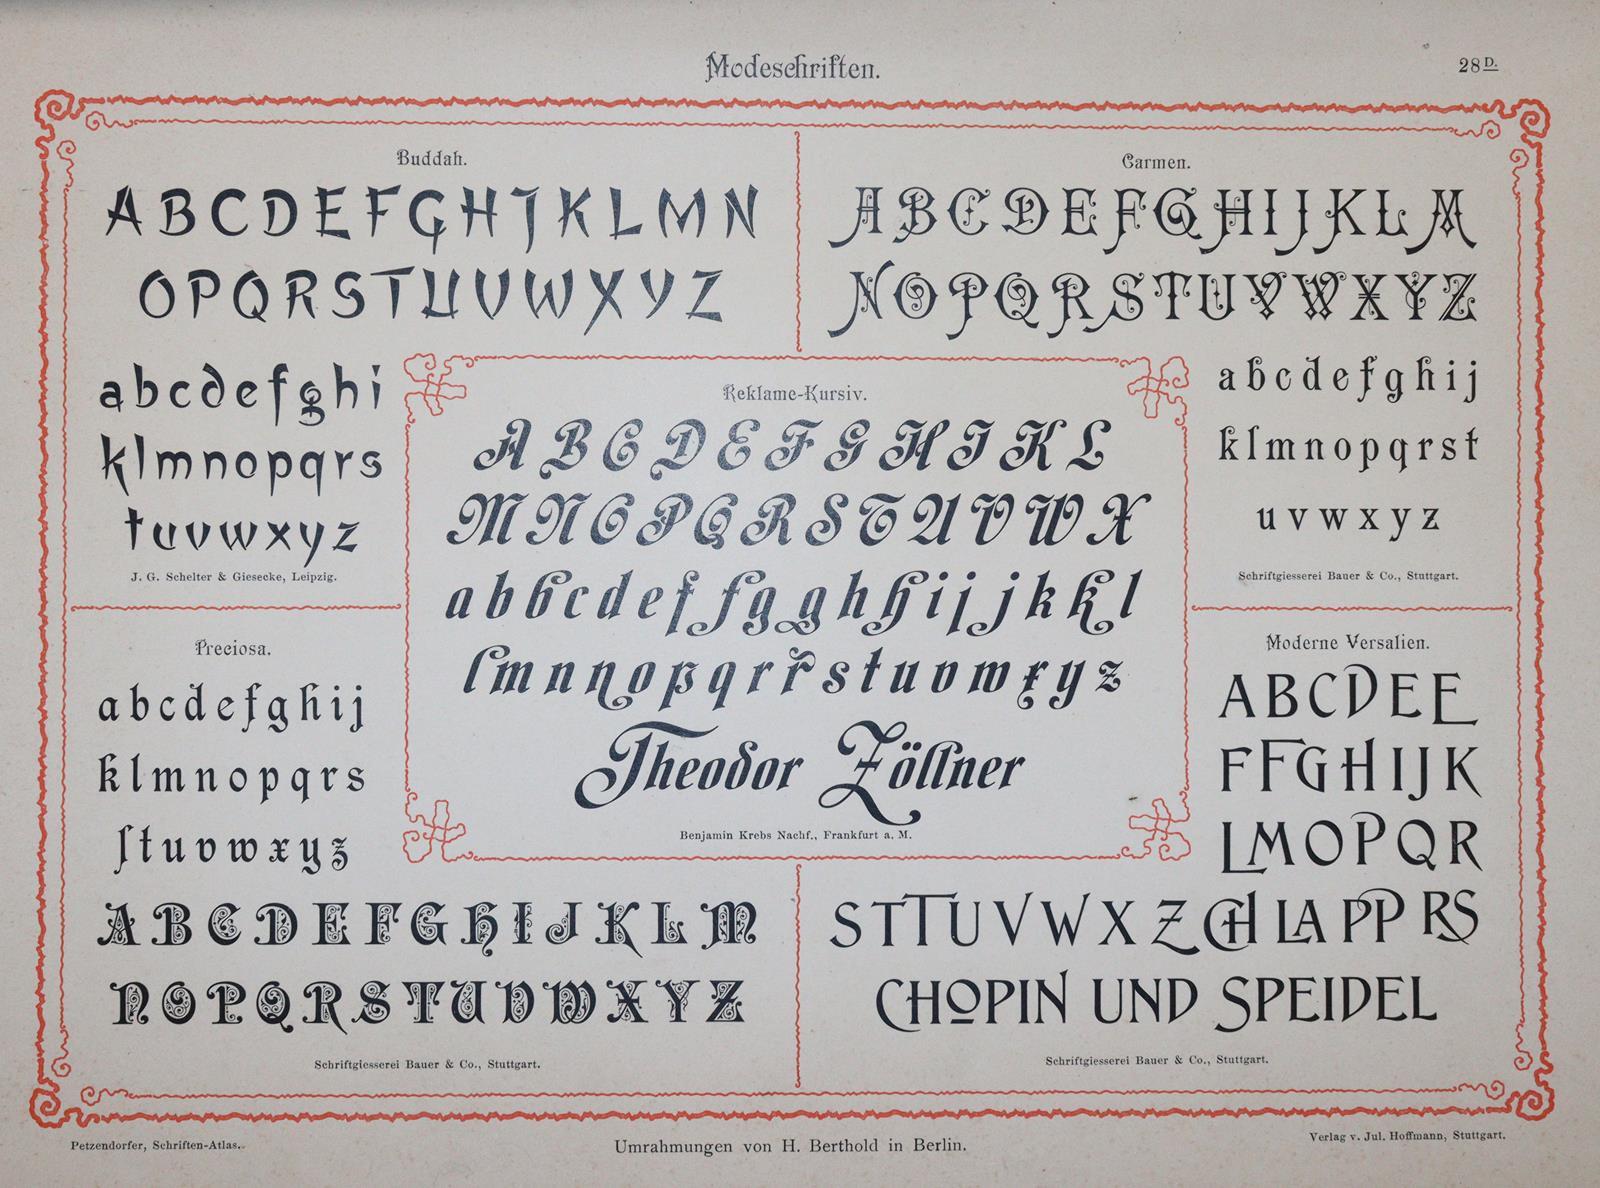 Modeschriften.
28D.
Buddah.
A B C D E F G H I J K L M N
O P Q R S T U U V W X Y Z
a b c d e f g h i
k l m n o p q r s
t u v w x y z
J. G. Schelter & Giesecke, Leipzig.
Carmen.
A B C D E F G H I J K L M
N O P Q R S T U V W X Y Z
a b c d e f g h i j
k l m n o p q r s t
u v w x y z
Schriftgiesserei Bauer & Co., Stuttgart.
Reklame-Kursiv.
A B C D E F G H I K L
M N O P Q R S T U V W X
a b b c d e f f g g h h i j j k k l
l m n n o p q r r s t u v w x y z
Theodor Zöllner
Benjamin Krebs Nachf., Frankfurt a. M.
Preciosa.
a b c d e f g h i j
k l m n o p q r s
ſ t u v w x y z
A B C D E F G H I J K L M
N O P Q R S T U V W X Y Z
Schriftgiesserei Bauer & Co., Stuttgart.
Moderne Versalien.
A B C D E E
F F G H I J K
L M O P Q R
S T T U V W X Z CH LA PP RS
CHOPIN UND SPEIDEL
Schriftgiesserei Bauer & Co., Stuttgart.
Petzendorfer, Schriften-Atlas.
Umrahmungen von H. Berthold in Berlin.
Verlag v. Jul. Hoffmann, Stuttgart.